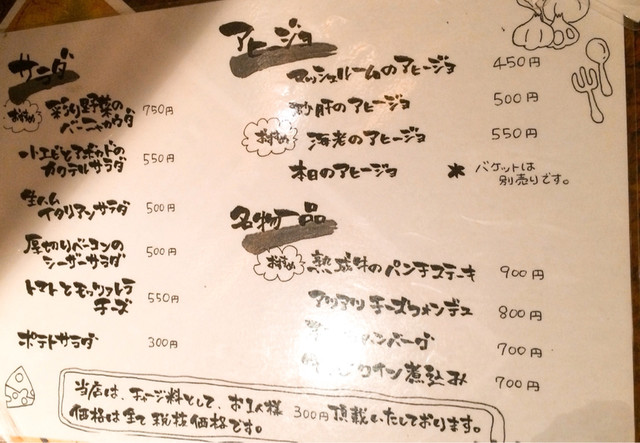 サラダ
おすすめ
彩り野菜の
バーニャカウダ 750円
小エビとアボカドの
カクテルサラダ 550円
生ハム
イタリアンサラダ 500円
厚切りベーコンの
シーザーサラダ 500円
トマトとモッツァレラ
チーズ 550円
ポテトサラダ 300円
アヒージョ
マッシュルームのアヒージョ 450円
砂肝のアヒージョ 500円
おすすめ
海老のアヒージョ 550円
本日のアヒージョ
* バケットは
別売りです。
名物一品
おすすめ
熟成味のパンチステーキ 900円
アツアツチーズフォンデュ 800円
ハンバーグ 700円
ワイン煮込み 700円
当店は、チャージ料として、お1人様 300円頂戴いたしております。
価格は全て税抜価格です。